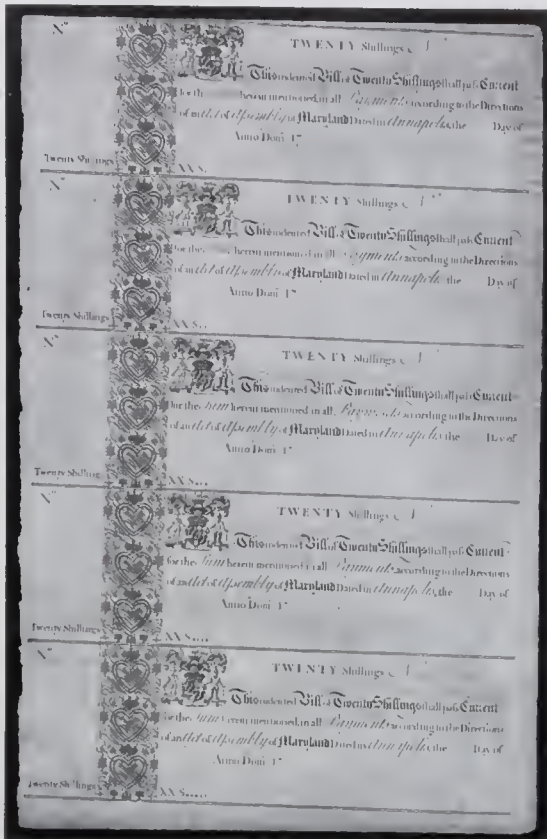 No
TWENTY Shillings
This indented Bill of Twenty Shillings shall pass Current
for th herein mentioned, in all Payments according to the Directions
of an Act of Assembly of Maryland Dated in Annapolis, the Day of
Anno Domi 17
Twenty Shillings XX S.
No
TWENTY Shillings
This indented Bill of Twenty Shillings shall pass Current
for the herein mentioned in all Payments according to the Directions
of an Act of Assembly of Maryland Dated in Annapolis, the Day of
Anno Domi 17
Twenty Shillings XX S..
No
TWENTY Shillings
This indented Bill of Twenty Shillings shall pass Current
for the Sum herein mentioned in all Payments according to the Directions
of an Act of Assembly of Maryland Dated in Annapolis, the Day of
Anno Domi 17
Twenty Shilling XX S...
No
TWENTY Shillings
This indented Bill of Twenty Shillings shall pass Current
for the Sum herein mentioned in all Payments according to the Directions
of an Act of Assembly of Maryland Dated in Annapolis, the Day of
Anno Domi 17
Twenty Shillings XX S....
No
TWENTY Shillings
This indented Bill of Twenty Shillings shall pass Current
for the Sum herein mentioned, in all Payments according to the Directions
of an Act of Assembly of Maryland Dated in Annapolis, the Day of
Anno Domi 17
Twenty Shillings XX S.....